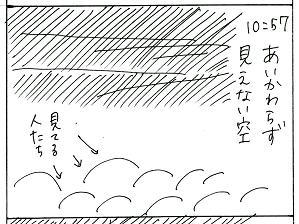 10:57
あいかわらず
見えない空
見てる
人たち